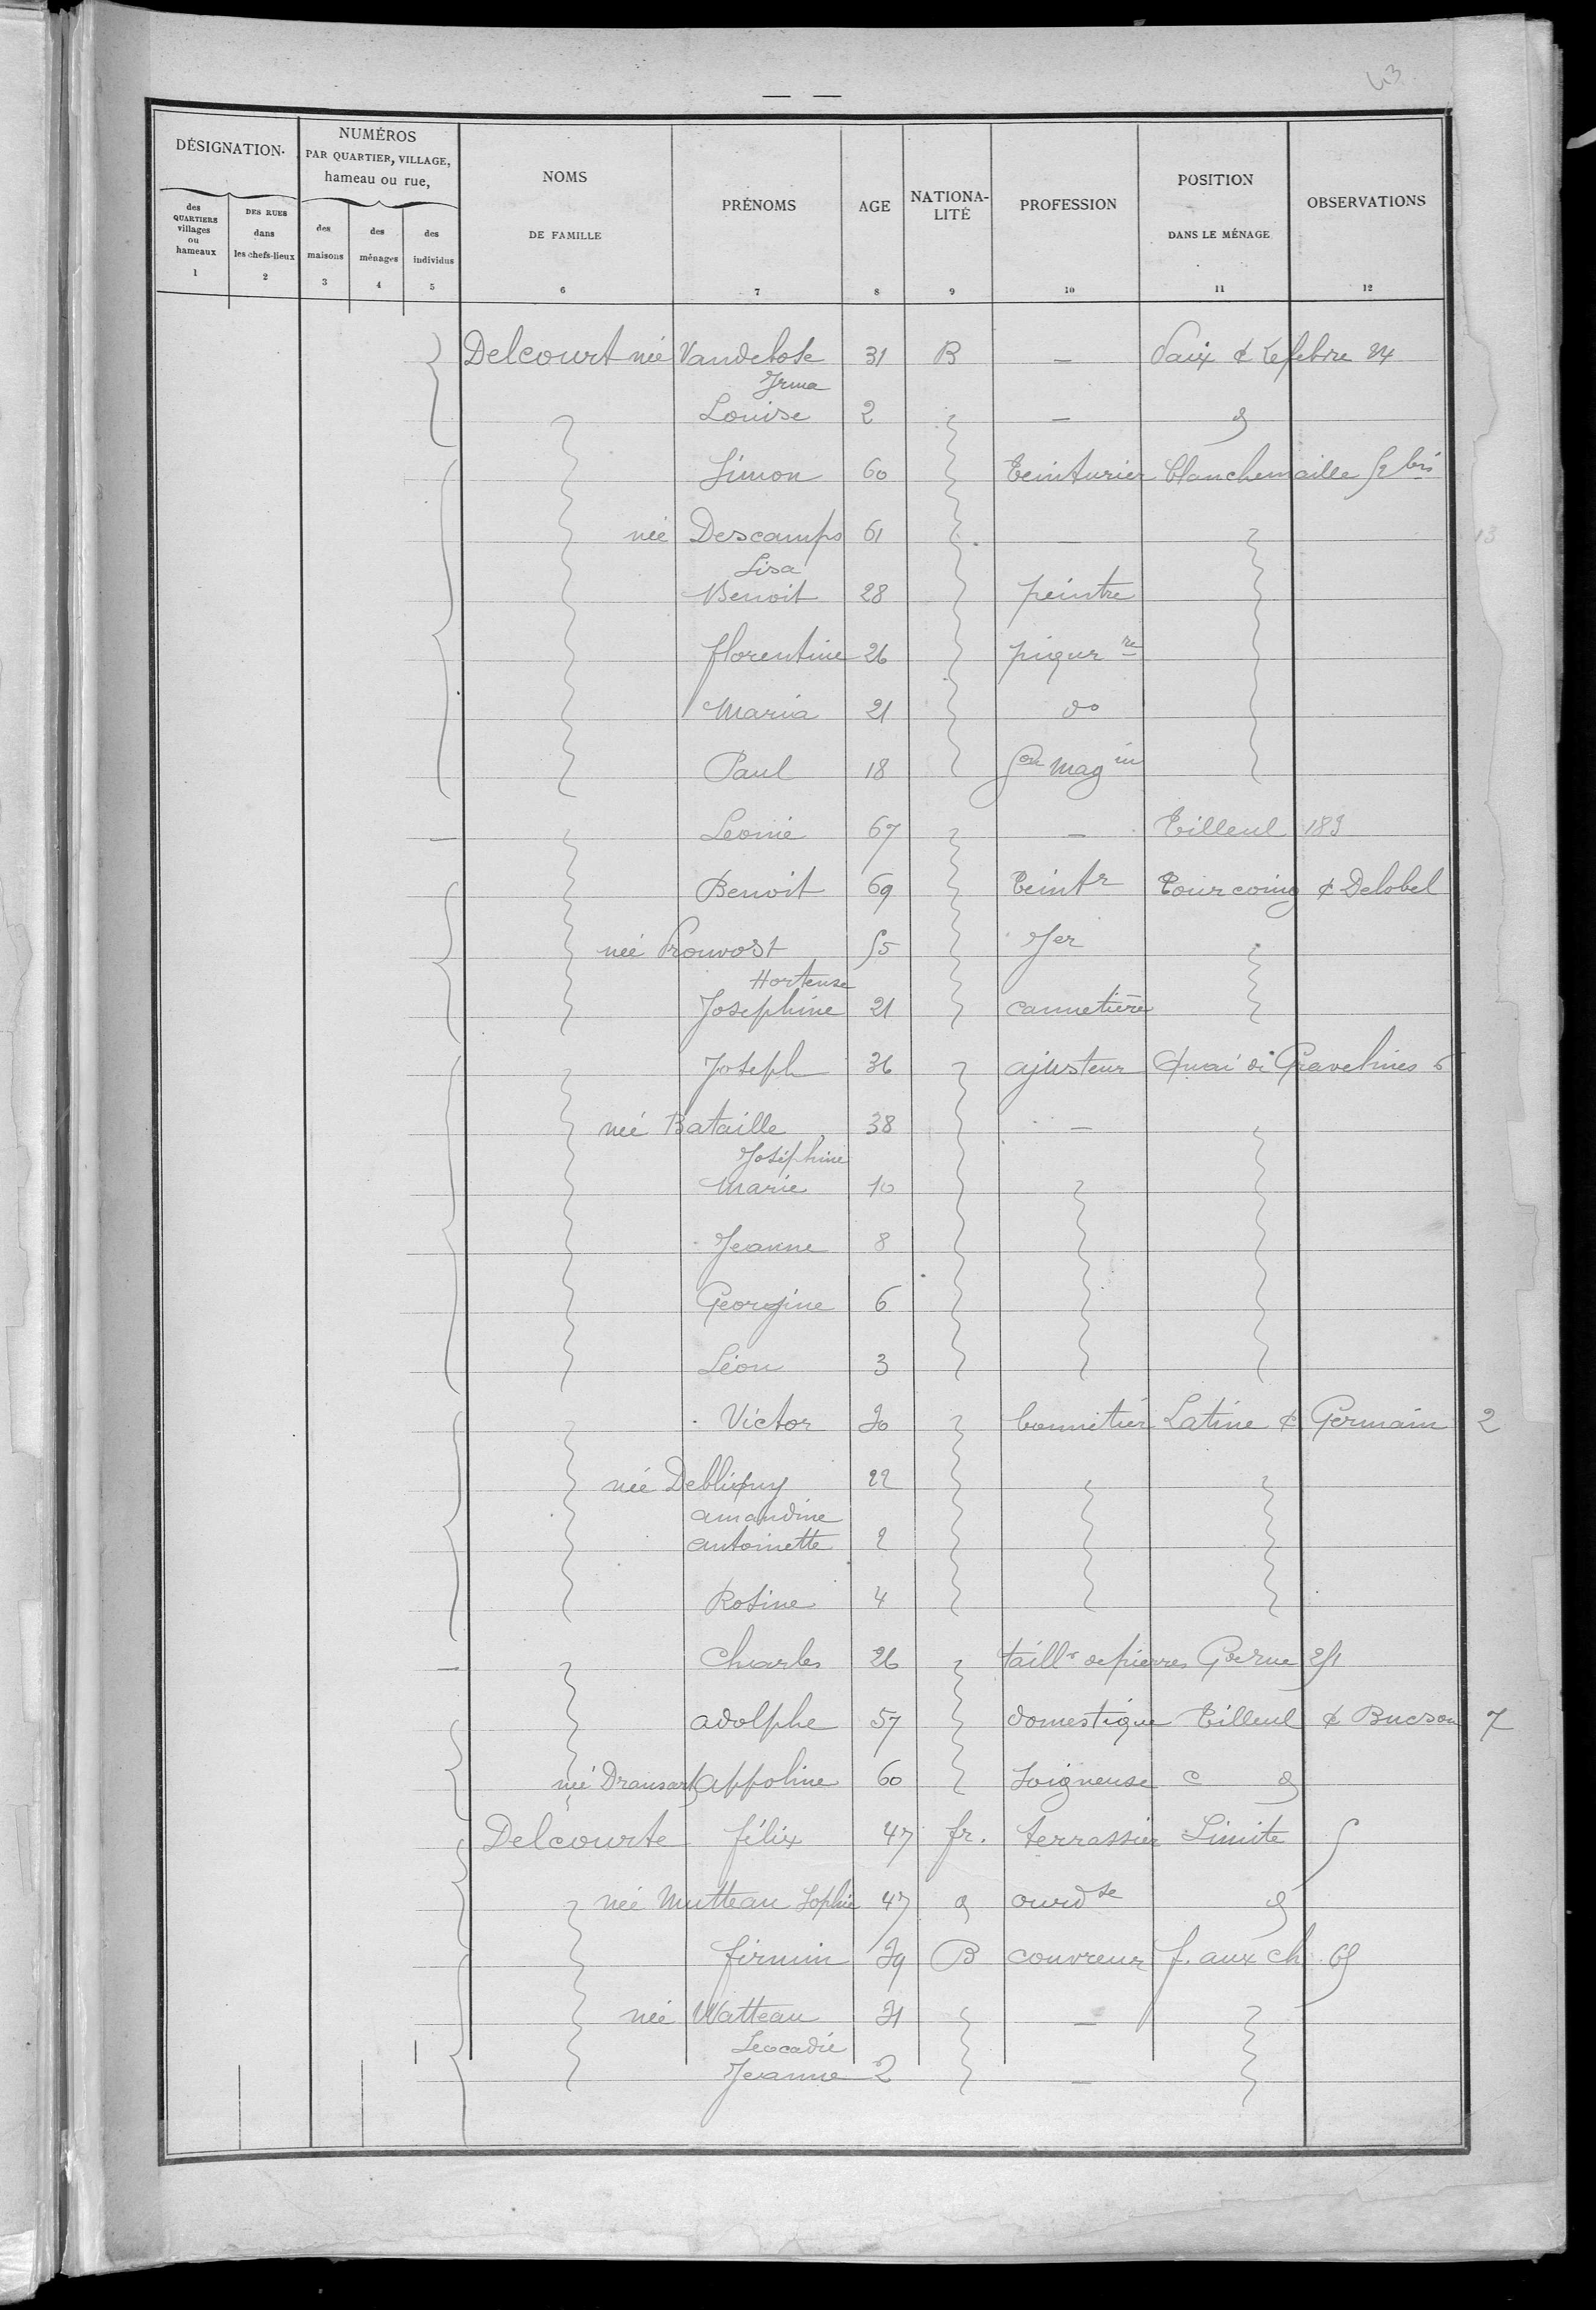 43
DÉSIGNATION
NUMÉROS PAR QUARTIER, VILLAGE, hameau ou rue,
NOMS DE FAMILLE
PRÉNOMS
AGE
NATIONALITÉ
PROFESSION
POSITION DANS LE MÉNAGE
OBSERVATIONS
des QUARTIERS villages ou hameaux
DES RUES dans les chefs-lieux
des maisons
des ménages
des individus
1 2 3 4 5 6 7 8 9 10 11 12
Delcourt née 31 B — Paix & Lefebvre 24
Irma
Louise 2 —
Simon 60 Teinturier Blanchemaille 52 bis
née Descamps 61 —
13
Lisa
Benoit 28 peintre
florentine 26 piqur re
Maria 21 do
Paul 18 Gon Mag in
Leonie 67 — Tilleul 189
Benoit 69 Teintr Tourcoing & Delobel
née Prouvost 55 Jer
Hortense
Josephine 21 cannetière
Joseph 36 ajusteur Quai de Gravelines 6
née Bataille 38 —
Joséphine
Marie 10
Jeanne 8
Georgine 6
Léon 3
Victor 30 bonnetier Latine & Germain 2
née 22
amandine
antoinette 2
Rosine 4
Charles 26 taillr de pierres Gde rue
adolphe 57 domestique Tilleul & Bucson 7
née Dransart Appoline 60 Soigneuse c
Delcourte félix 47 fr. terrassier Limite
née Mutteau Sophie 47 ourdse
firmin 39 B couvreur f. aux ch. 65
née Watteau 31 —
Leocadie
Jeanne 2 —